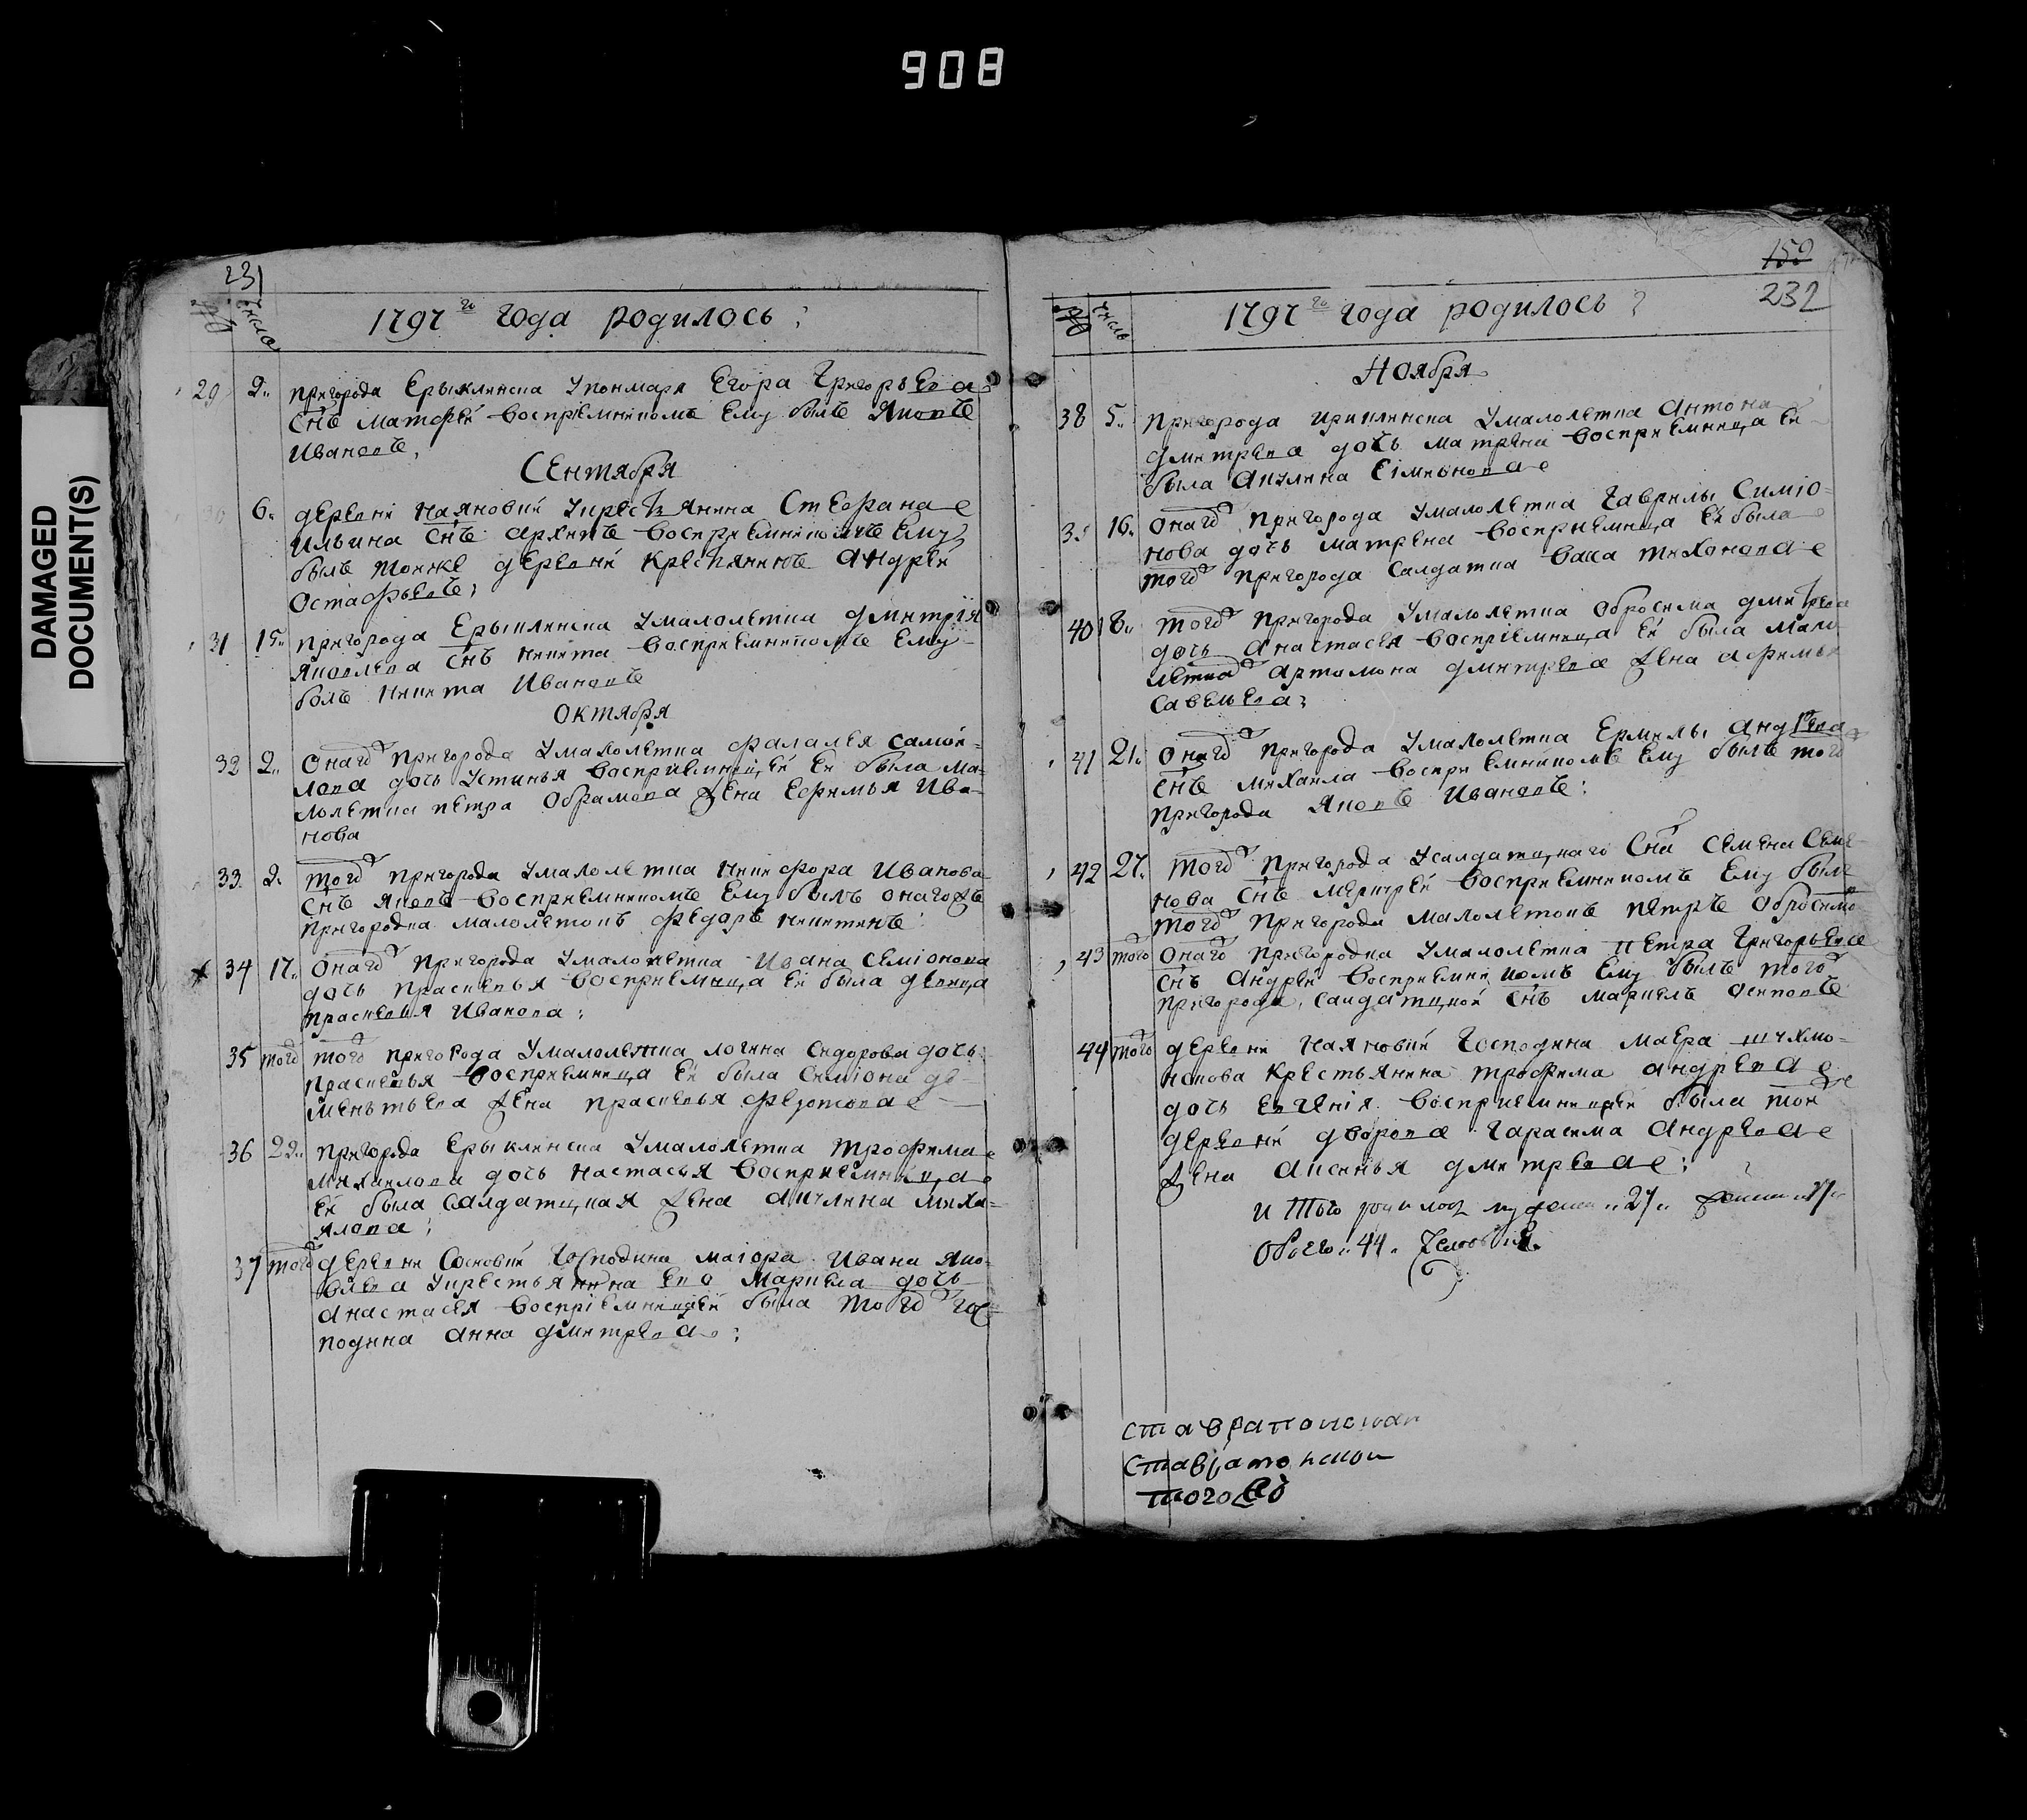 908
DAMAGED
DOCUMENT(S)
231
№ число
1797го года родилось:
29 2. пригорода Ерыклинска у понмаря Егора Григорьева
снъ Матфей восприемникомъ ему былъ Яковъ
Ивановъ,
Сентября
6. деревни Наяновки у крестьянина Стефана
Ильина снъ Архипъ восприемникомъ ему
былъ тоиже деревни крестянинъ Андрей
Остафьевъ;
31 15. пригорода Ерыклинска у малолетка Дмитрія
Яковлева снъ Никита восприемникомъ ему
былъ Никита Ивановъ
Октября
32 2. Онаго пригорода у малолетка Фалалея Самой-
лова дочь Устинья восприемницей ей была ма-
лолетка Петра Обрамова жена Ефимья Ива-
нова
33 2. того пригорода у малолетка Никифора Иванова
снъ Яковъ восприемникомъ ему былъ онагожъ
пригородка малолетокъ Федоръ Никитинъ:
34 17. Онаго пригорода у малолетка Ивана Семіонова
дочь Прасковья восприемница ей была девица
Прасковия Иванова;
35 того того пригорода у малолетка Логина Сидорова дочь
Прасковья восприемница ей была Симіона де-
ментьева жена Прасковья Федотова
36 22. пригорода Ерыклинска у малолетка Трофима
Михаилова дочь Настасья восприемница
ей была салдатцкая жена Акулина Миха-
ялова;
37 того деревни Сосновки Господина маіора Ивана Яко-
влева у крестьянина ево Маркела дочь
Анастасея восприемницей была того гос-
подина Анна Дмитрева;
159
232
№ число
1797го года родилось
Ноября
38 5. пригорода Ириклинска у малолетка Антона
Дмитрева дочь Матрена восприемница ей
была Акулина Симионова
16. Онаго пригорода у малолетка Гаврилы Симіо-
нова дочь Матрена восприемница ей была
того пригорода салдатка Васа Тиханова
40 18. того пригорода у малолетка Обросима Дмитрева
дочь Анастасея восприемница ей была мало
летка Артамона Дмитрева жена Афимья
Савельева;
41 21. Онаго пригорода у малолетка Ермилы Андрева
снъ Михаила восприемникомъ ему былъ того
пригорода Яковъ Ивановъ:
42 27. того пригорода у салдатцкаго сна Семена Семе-
нова снъ Меркурей восприемникомъ ему былъ
того пригорода малолетокъ Петръ Обросимо
43 того Онаго пригородка у малолетка Петра Григорьева
снъ Андрей восприемникомъ ему былъ того
пригорода салдатцкой снъ Маркелъ Осиповъ
44 того деревни Наяновки Господина маера
крестьянина Трофима Андрева
дочь Евгенія восприемницей была той
деревни дворова Гарасима Андрева
жена Аксинья Дмитрева:
Итого родилось мужеска 27. женска 17.
обоего 44. человека
Ставрапольскаи
Ставрапольскои
тогожъ